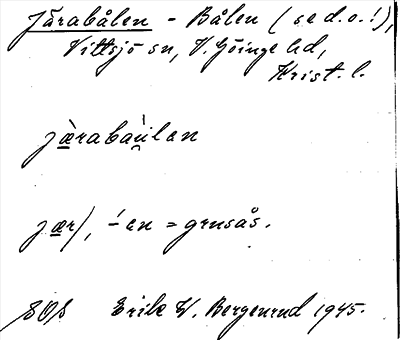 Järabålen - Bålen (se d.o.!),
Vittsjö sn, V. Göinge hd,
Krist. l.
jæ̀rabaùlan
jær/, -́en = grusås.
SOS Erik W. Bergenrud 1945.